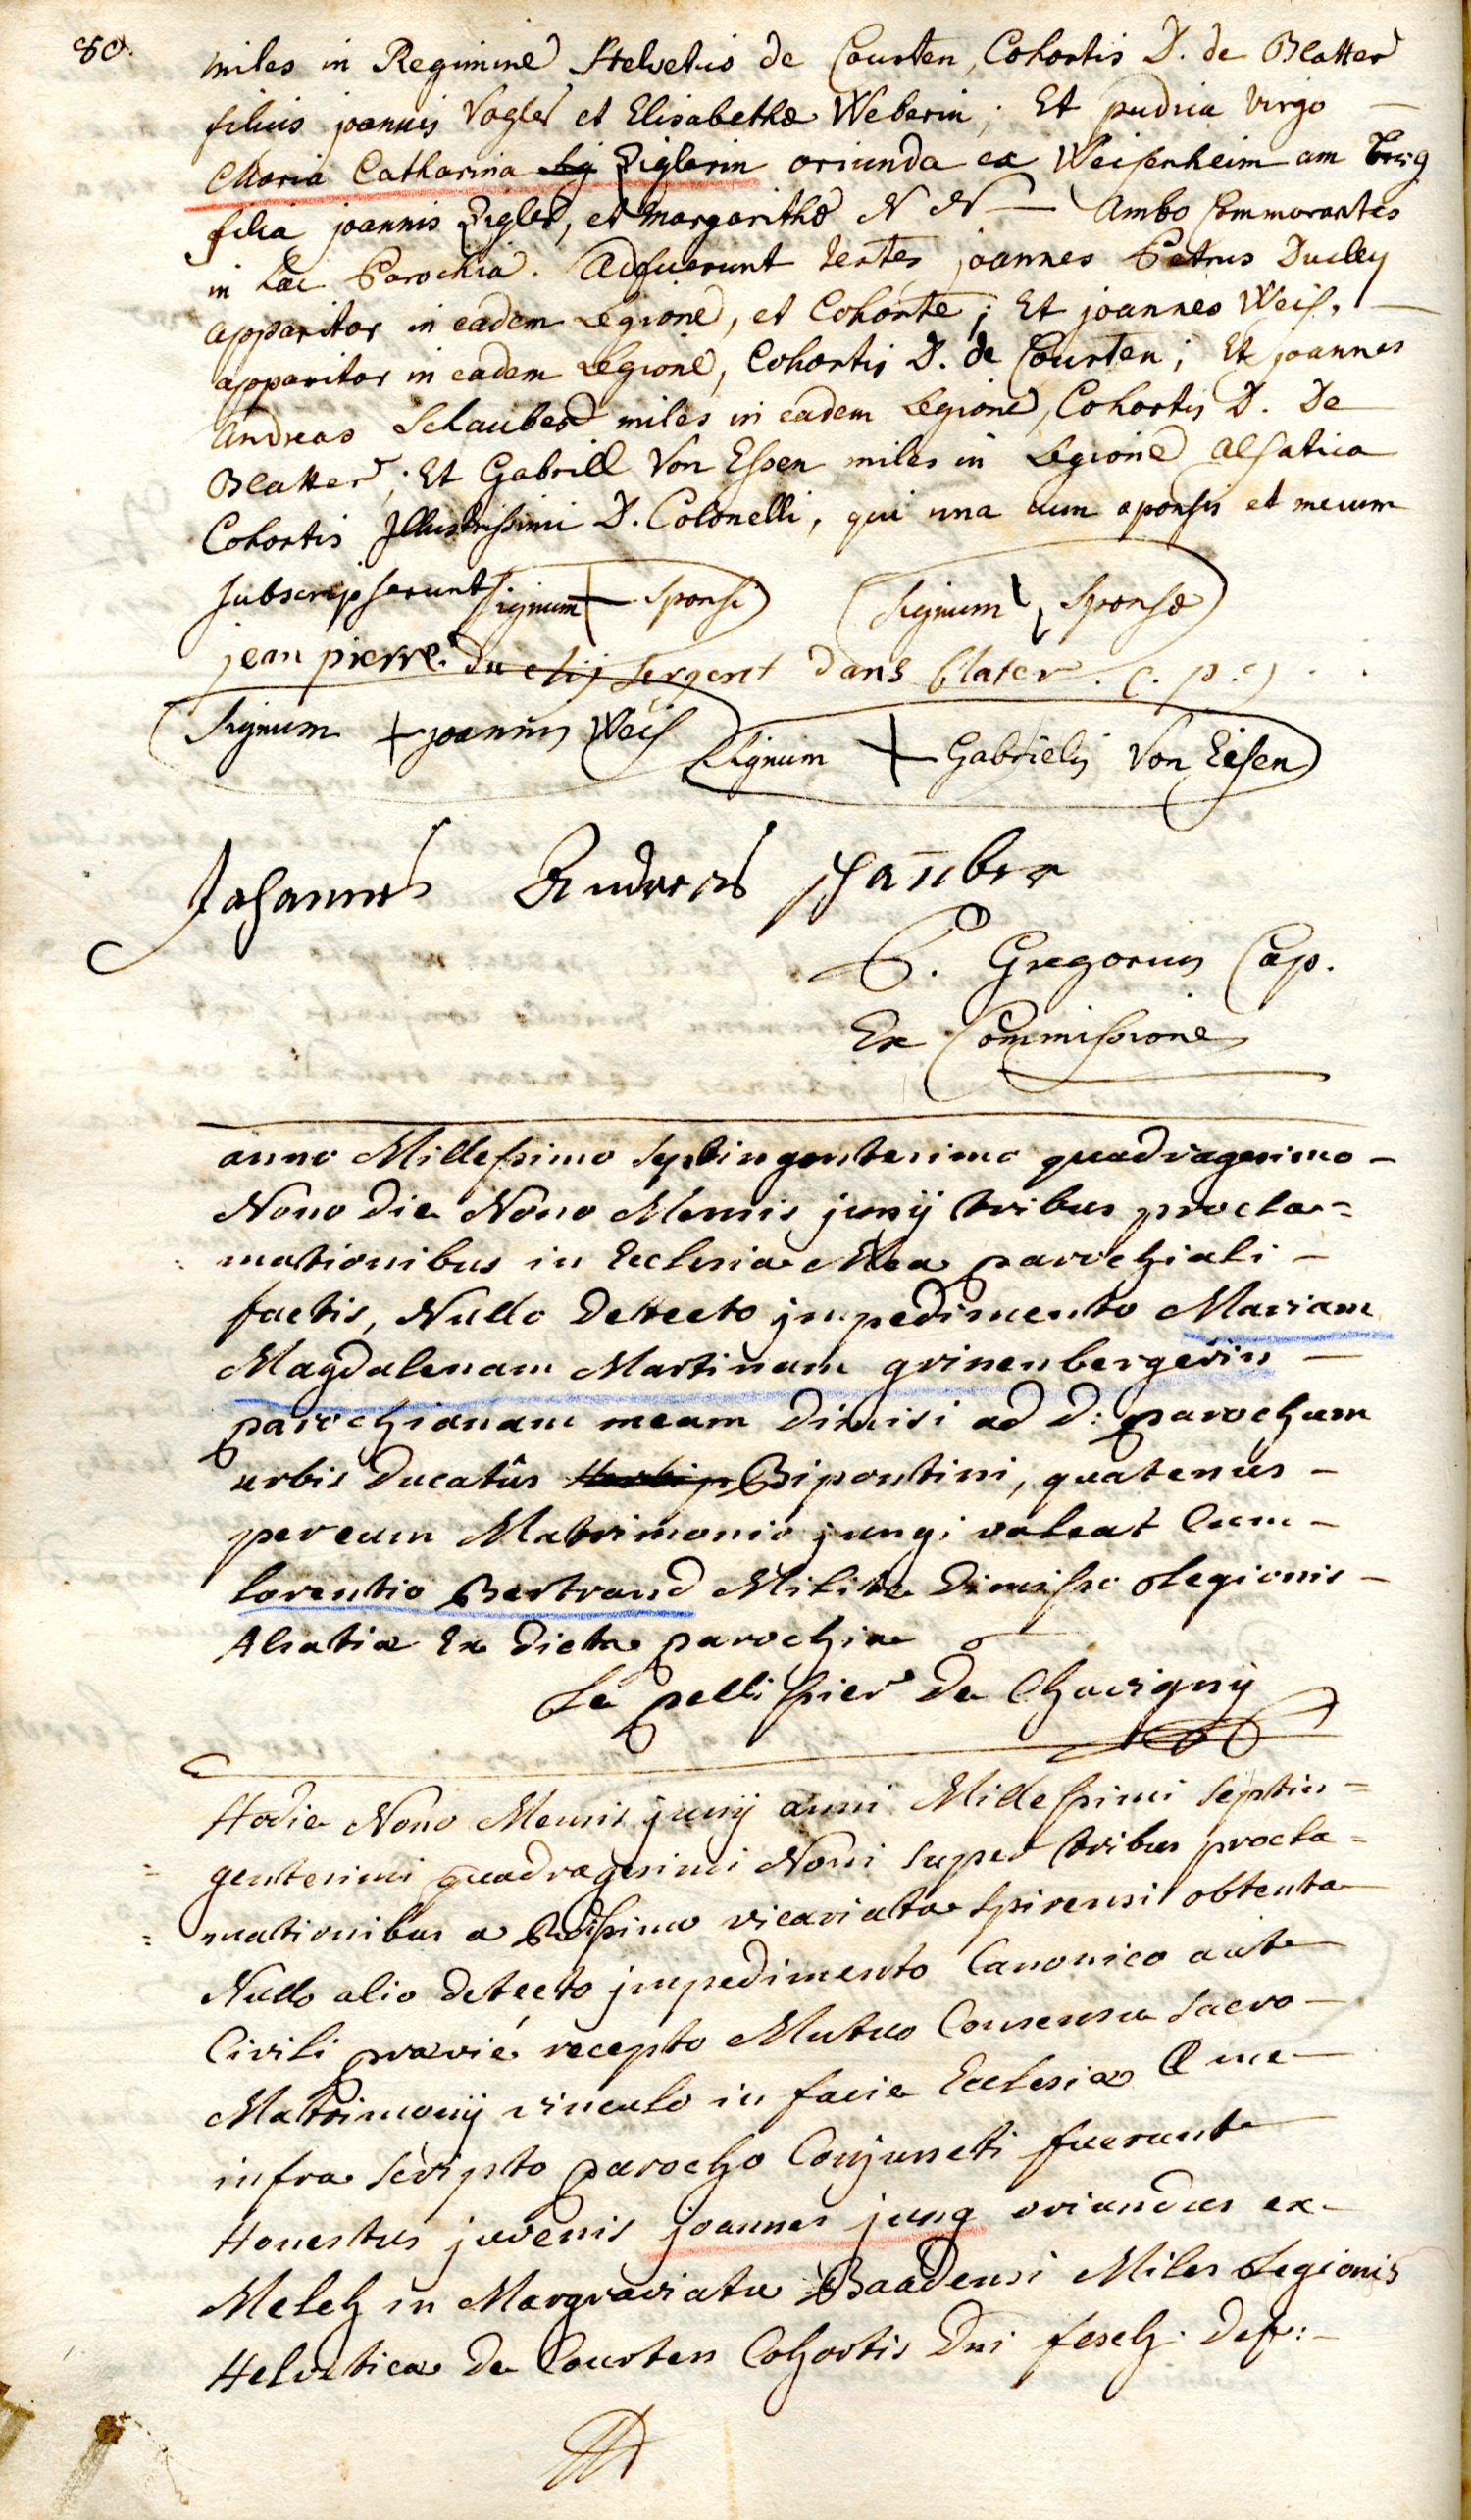 80.
miles in Regimine Helvetio de Courten, Cohortis D. de Blatter
filius joannis Vogler et Elisabethæ Weberin; Et pudica virgo —
Maria Catharina Ziglerin oriunda ex Weisenheim am berg
filia joannis Zigler, et Margarithæ N N — Ambo Commorantes
in hac Parochia. Adfuerunt testes joannes Petrus Duclÿ
apparitor in eadem Legione, et Cohorte; Et joannes Weis, —
apparitor in eadem Legione, Cohortis D. de Courten; Et joannes
Andreas Schauber miles in eadem Legione, Cohortis D. De
Blatter; Et Gabriel Von Essen miles in Legione alsatica
Cohortis Illustrissimi D. Colonelli, qui una cum sponsis et mecum
subscripserunt Signum + Sponsi Signum + Sponsæ
jean pierre du sergent dans blater . c. p. c)
Signum + joannis Weis Signum + Gabrielis Von Eisen
Johannes Andreas schauber
P. Gregorius Cap.
Ex Commissione
anno Millesimo septingentesimo quadragesimo —
Nono die Nono Mensis junÿ tribus procla=
mationibus in Ecclesia Mea parochiali —
factis, Nullo Dettecto jmpedimento Mariam
Magdalenam Martinam grinenbergerin —
parochianam meam Dimisi ad d: parochum
urbis Ducatûs Bipontini, quatenus —
per eum Matrimonio jungi valeat Cum —
lorentio Bertrand Milite Dimisso Legionis —
Alsatiæ Ex Dicta parochia
Le pellissier De Chavignÿ
Hodie Nono Mensis junÿ anni Millesimi septin=
= gentesimi quadragesimi Noni super tribus procla=
= mationibus a Rdissimo vicariatu Spirensi obtenta
Nullo alio detecto jmpedimento Canonico aut
Civili prævie recepto Mutuo Consensu sacro —
Matrimonÿ vinculo in facie Ecclesiæ a me —
infra scripto parocho Conjuncti fuerunt
Honestus juvenis joannes jung oriundus ex —
Melch in Margraviatu Baadensi Miles Legionis
Helveticæ De Courten Cohortis Dni fesch. Def: —